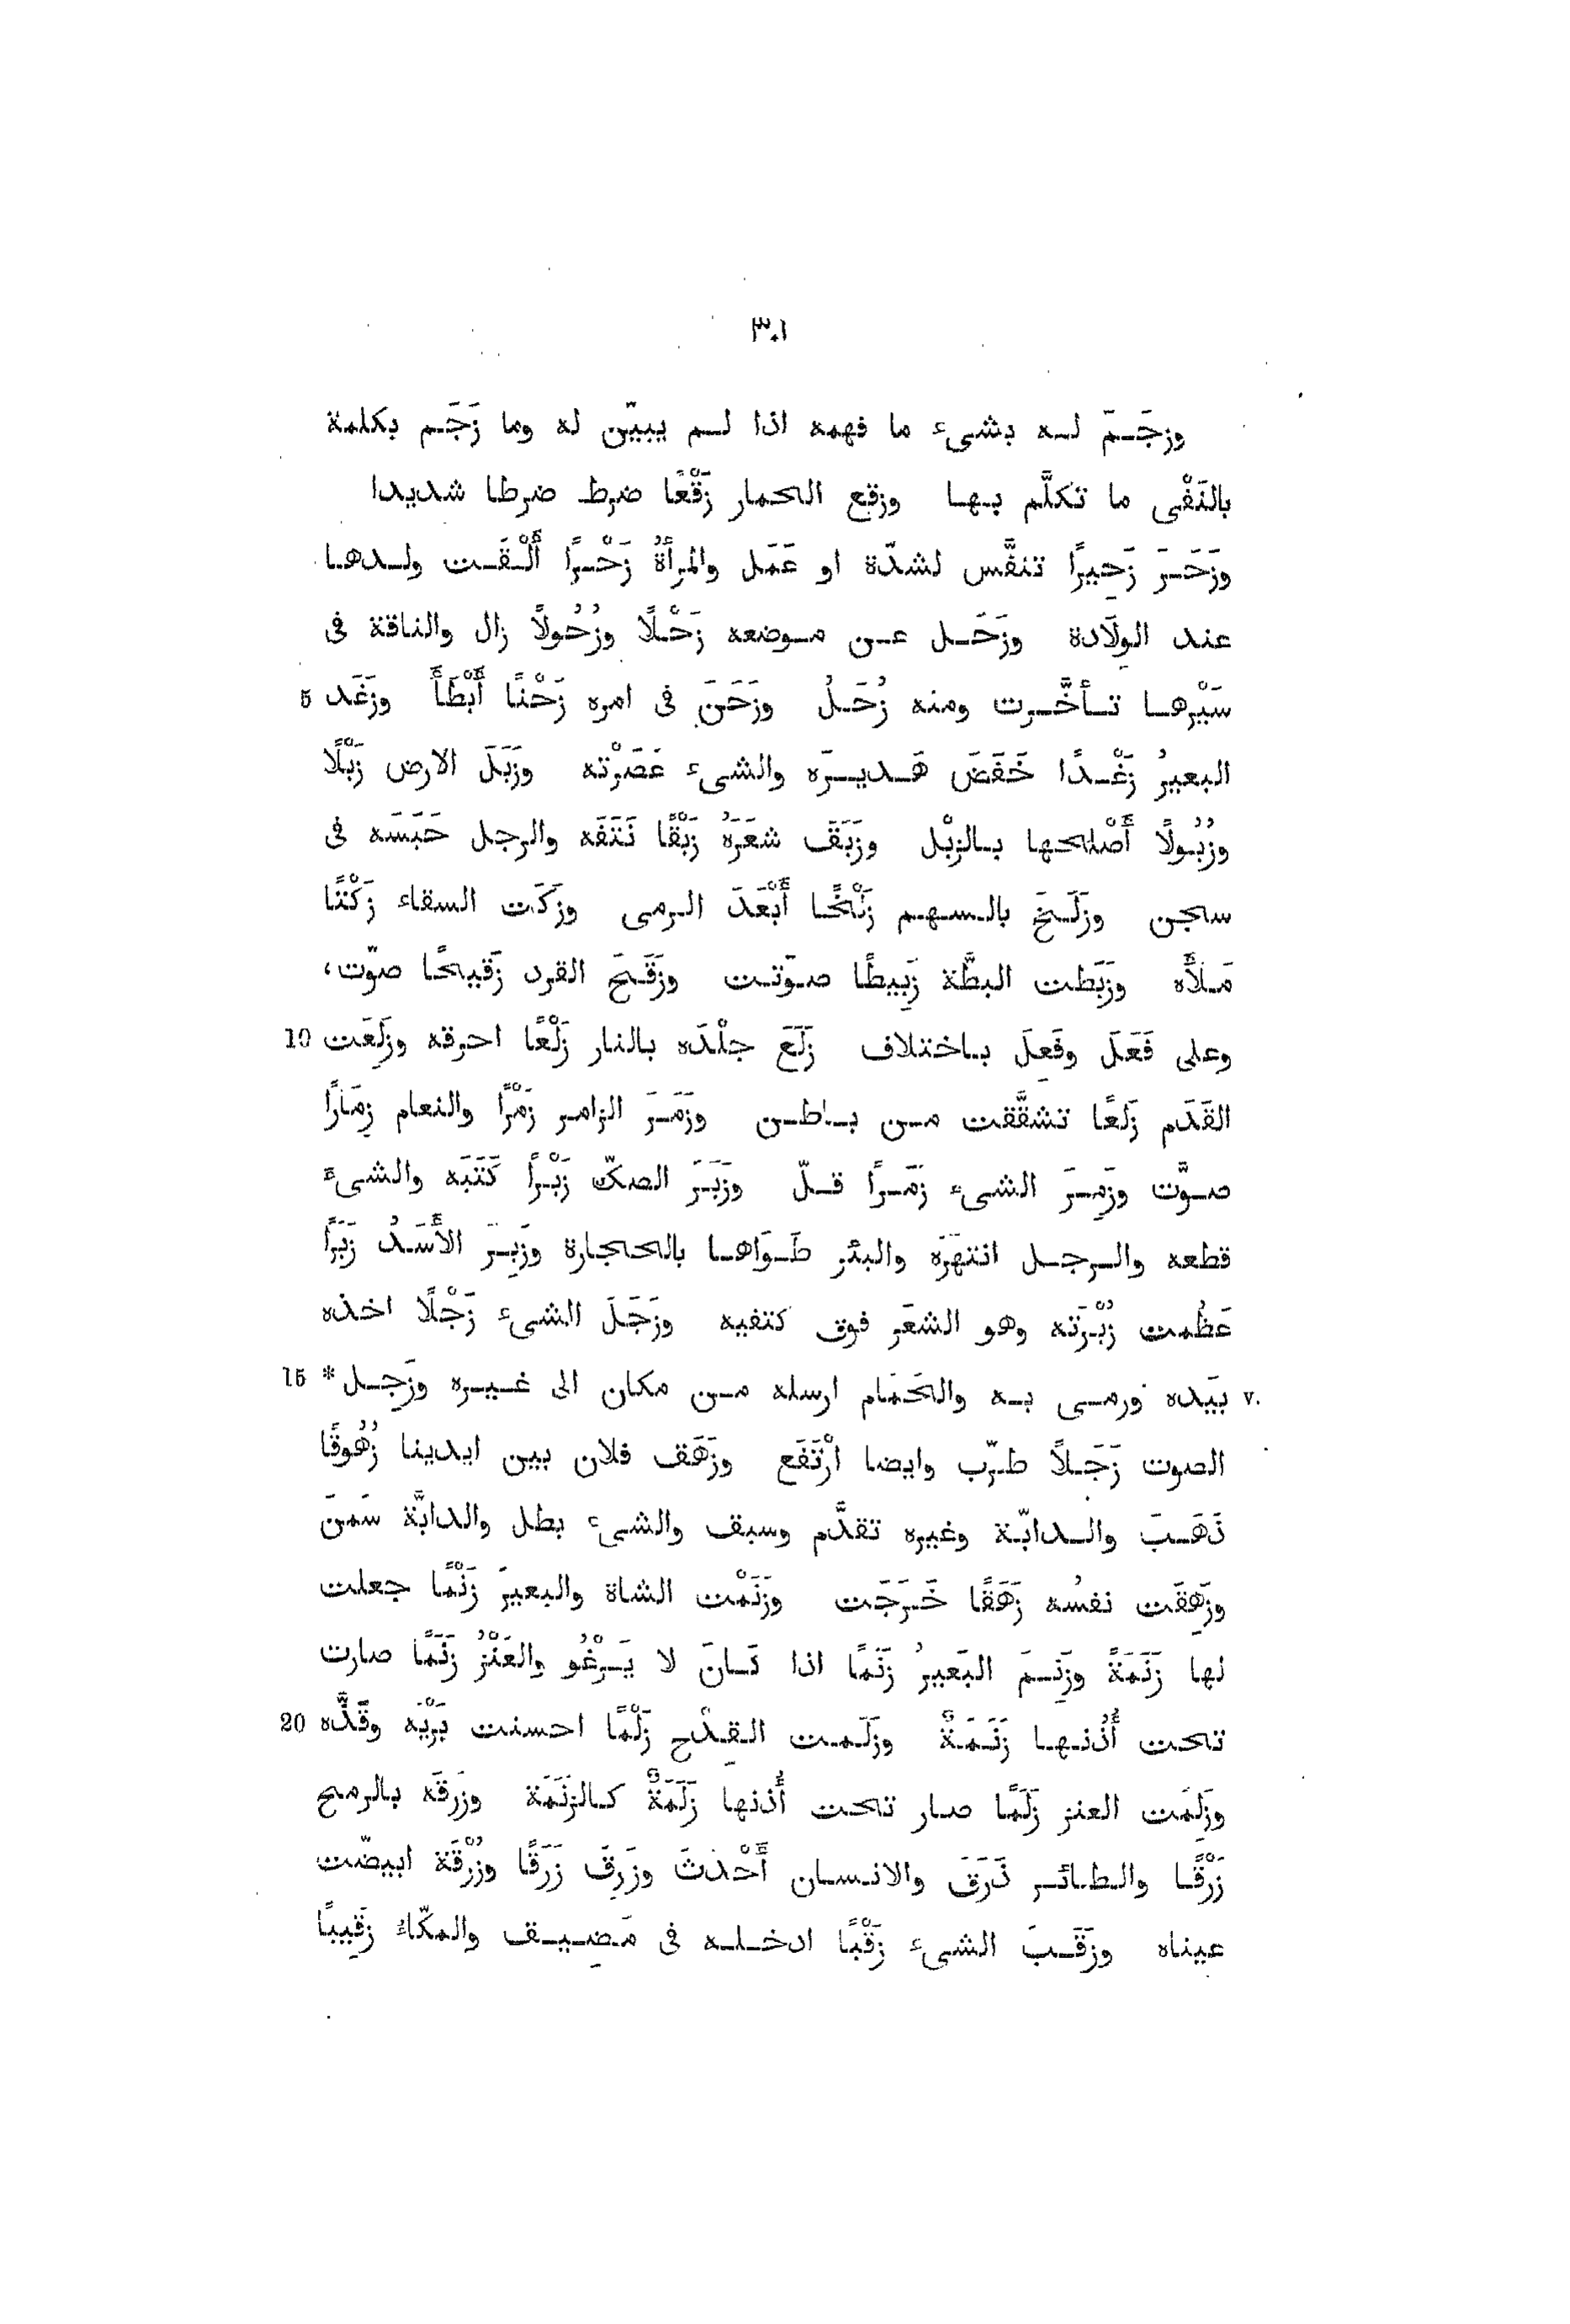 ٣٠١
وزجَمَ له بشىء ما فهمه اذا لم يبيّن له وما زَجَم بكلمة
بالنَفْى ما تكلَّم بها وزقع الحمار زَقْعًا ضرط ضرطا شديدا
وزَحَرَ زَحِيرًا تنفَّس لشدّة او عَمَل والمرأةُ زَحْرًا أَلْقَت ولدها
عند الوِلَادة وزَحَل عن موضعه زَحْلًا وزُحُولاً زال والناقة فى
سَيْرها تأخَّرت ومنه زُحَلُ وزَحَنَ فى امره زَحْنًا أَبْطَأَ وزَغَد 5
البعيرُ زَغْدًا خَفَضَ هَديرَه والشىء عَصَرْته وزَبَلَ الارض زَبْلًا
وزُبُولاً أَصْلحها بالزِبْل وزَبَقَ شعَرَهُ زَبْقًا نَتَفَه والرجل حَبَسَه فى
سجن وزَلَخَ بالسهم زَلْخًا أَبْعَدَ الرمى وزَكَت السقاء زَكْتًا
مَلأَه وزَبَطت البطَّة زَبِيطًا صوّتت وزَقَحَ القرد زَقِيحًا صوّت،
وعلى فَعَلَ وفَعِلَ باختلاف زَلَعَ جلْدَه بالنار زَلْعًا احرقه وزَلِعَت 10
القَدَم زَلَعًا تشقَّقت من باطن وزَمَرَ الزامر زَمْرًا والنعام زِمَارًا
صوَّت وزَمِرَ الشىء زَمَرًا قلّ وزَبَرَ الصكّ زَبْرًا كَتَبَه والشىءَ
قطعه والرجل انتهَرَه والبئر طَوَاها بالحجارة وزَبِرَ الأَسَدُ زَبَرًا
عَظُمت زُبْرَته وهو الشعَر فوق كتفيه وزَجَلَ الشىء زَجْلًا اخذه
٧٠ بيَده ورمى به والحَمَام ارسله من مكان الى غيره وزَجِل * 15
الصوت زَجَلاً طرّب وايضا ارْتَفَع وزَهَق فلان بين ايدينا زُهُوقًا
ذَهَبَ والدابّة وغيره تقدَّم وسبق والشىء بطل والدابَّة سَمِنَ
وزَهِقَت نفسُه زَهَقًا خَرَجَت وزَنَمْت الشاة والبعيرَ زَنْمًا جعلت
لها زَنَمَةً وزَنِمَ البَعيرُ زَنَمًا اذا كَانَ لا يَرْغُو والعَنْزُ زَنَمًا صارت
تحت أُذنها زَنَمَةٌ وزَلَمت القِدْح زَلْمًا احسنت بَرْيَه وقَدَّه 20
وزَلِمَت العنز زَلَمًا صار تحت أُذنها زَلَمَةٌ كالزَنَمَة وزرقَه بالرمح
زَرْقًا والطائر ذَرَقَ والانسان أَحْدَثَ وزَرِقَ زَرَقًا وزُرْقَة ابيضّت
عيناه وزَقَبَ الشىء زَقْبًا ادخله فى مَضِيق والمكّاءُ زَقِيبًا